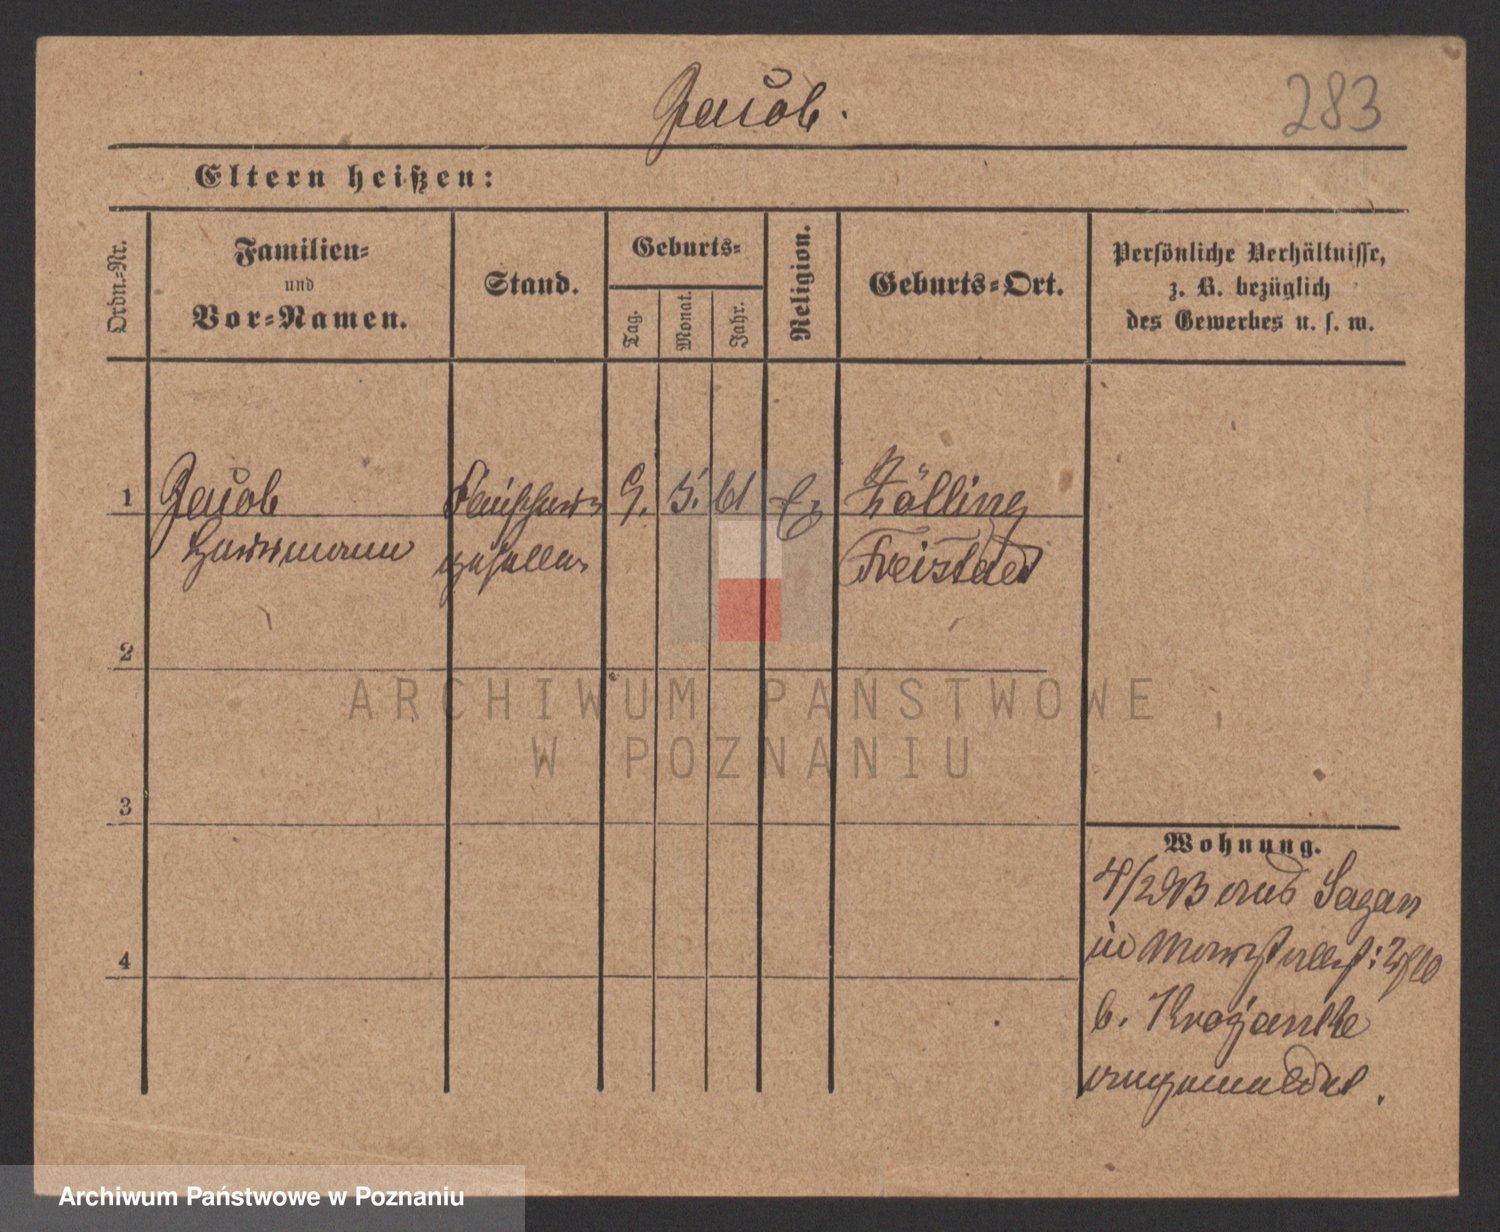 Jacob.
283
Eltern heißen:
Ordn.-Nr.
Familien-
und
Vor-Namen.
Stand.
Geburts-
Tag.
Monat.
Jahr.
Religion.
Geburts-Ort.
Persönliche Verhältnisse,
z. B. bezüglich
des Gewerbes u. s. w.
1
Jacob
Herrmann
Fleischer
geselle
9.
5.
61
Ev
Zölling
Freistadt
2
3
4
Wohnung.
aus Sagan
in
b. Krojanke
angemeldet.
ARCHIWUM PAŃSTWOWE
W POZNANIU
Archiwum Państwowe w Poznaniu